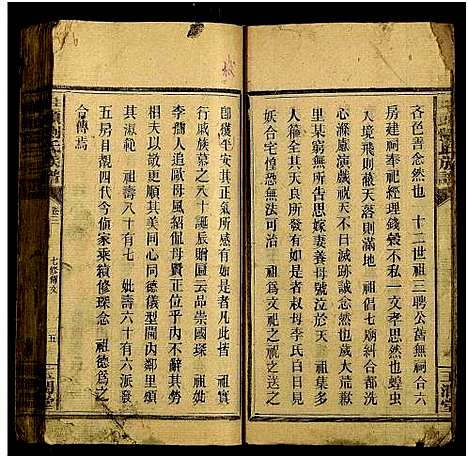 吝色善念然也 十二世祖三聘公舊無祠合六
房建祠奉祀經理錢穀不私一文孝思然也蝗虫
入境飛則蔽天落則滿地 祖倡七廟糾合都衆
冰心素慮演戲祝天不日滅跡誠念然也歲大荒歉
里某窮無所出思嫁妻養母號泣於 天 祖葉多
人穡全其天良所發有如是者叔母李氏白日見
妖合宅不寧 祖為文祀之之神祝之送之
即獲平安其正氣所感有如是者凡此皆 祖
行戚族慕之八十誕辰贈圖云品崇國琛 祖妣
李儒人追歐母風紹侃母賢正位乎內不辭其勞
相夫以敬更順其美同心同德儀型閫內鄰里頌
其淑範 祖壽八十有七 妣壽六十有六派發
五房目覩四代今偵家乘續修琛念 祖德為之
合傳焉
劉氏族譜
卷二
七修傳文
五